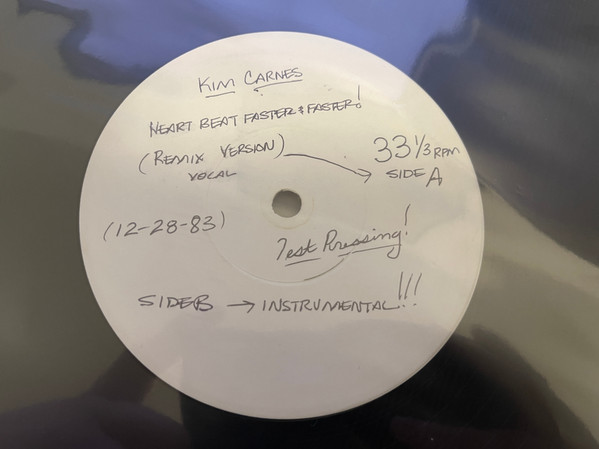 KIM CARNES
HEART BEAT FASTER & FASTER!
(REMIX VERSION) → 33 1/3 RPM
VOCAL SIDE A
(12-28-83)
Test Pressing!
SIDE B → INSTRUMENTAL!!!